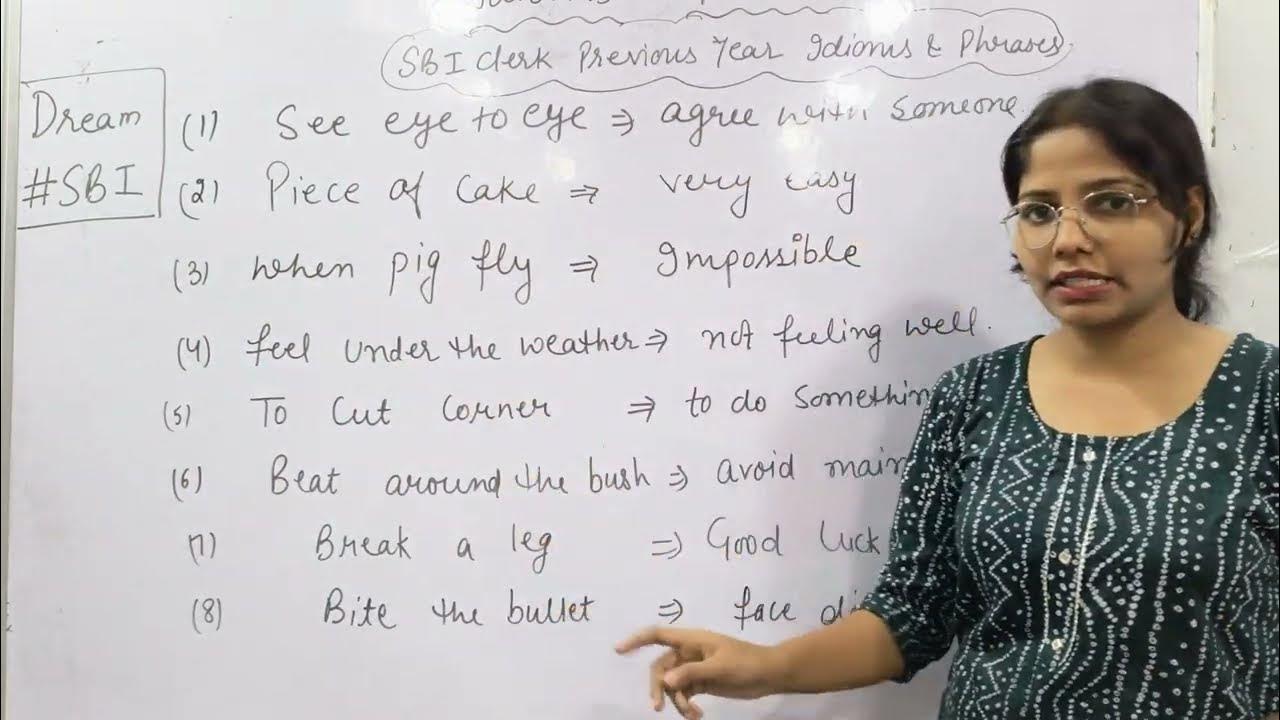 SBI clerk Previous Year Idioms & Phrases
Dream
#SBI
(1) See eye to eye ⇒ agree with someone.
(2) Piece of Cake ⇒ very easy
(3) when pig fly ⇒ Impossible
(4) feel under the weather ⇒ not feeling well.
(5) To Cut Corner ⇒ to do Somethin
(6) Beat around the bush ⇒ avoid main
(7) Break a leg ⇒ Good luck
(8) Bite the bullet ⇒ face di